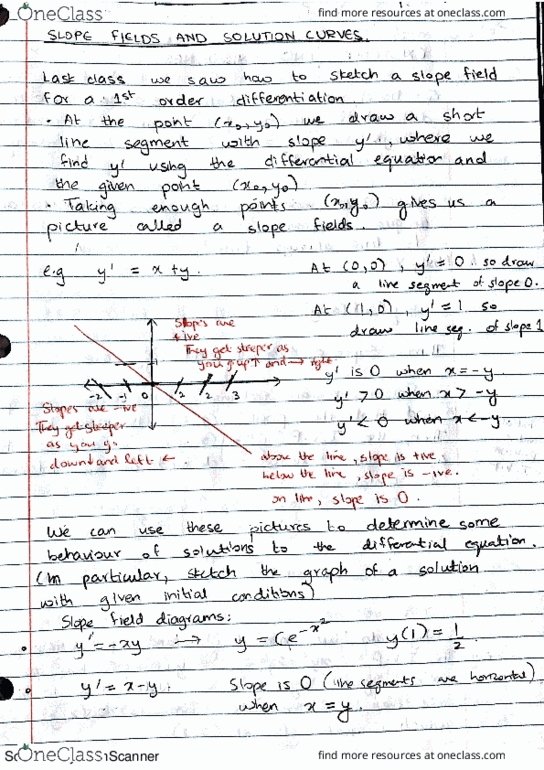 OneClass
find more resources at oneclass.com
SLOPE FIELDS AND SOLUTION CURVES.
Last class we saw how to sketch a slope field
for a 1st order differentiation.
• At the point (x₀,y₀) we draw a short
line segment with slope y', where we
find y' using the differential equation and
the given point (x₀,y₀)
• Taking enough points (x₀,y₀) gives us a
picture called a slope fields.
e.g y' = x+y.
At (0,0), y'=0 so draw
a line segment of slope 0.
At (1,0), y'=1 so
draw line seg. of slope 1
Slop's are
+ive
They get streper as
you go up ↑ and → right
-2 -1 0 2 2 3
y' is 0 when x=-y
y' > 0 when x > -y
y' < 0 when x < -y.
Slopes are -ive
They get streeper
as you go
down and left ←
above the line, slope is +ive
below the line, slope is -ive.
on line, slope is 0.
We can use these pictures to determine some
behaviour of solutions to the differential equation.
(In particular, sketch the graph of a solution
with given initial conditions)
Slope field diagrams:
• y' = -xy → y = Ce^-x² y(1) = 1/2.
• y' = x-y. Slope is 0 (line segments are horizontal)
when x = y.
OneClass
Scanner
find more resources at oneclass.com